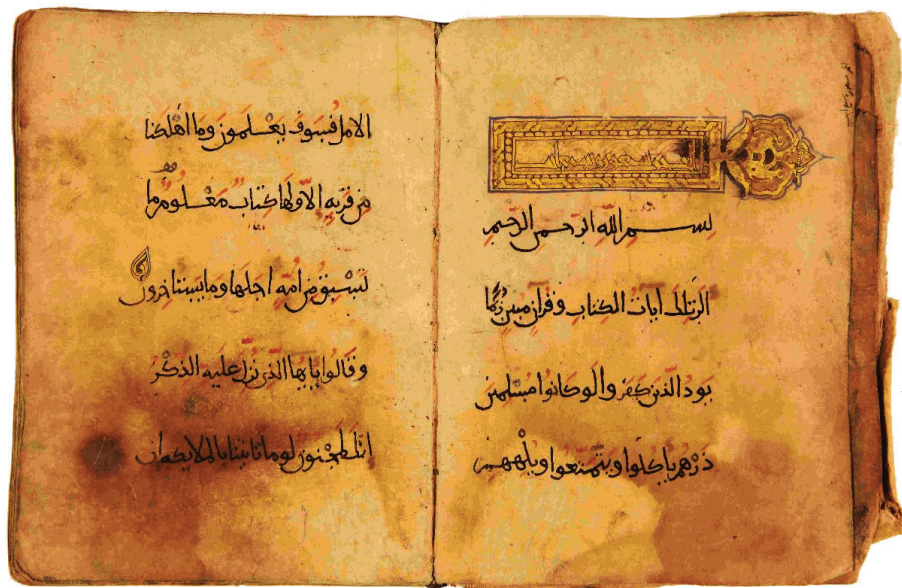 بسم الله الرحمن الرحيم
الر تلك آيات الكتاب وقرآن مبين ربما
يود الذين كفروا لو كانوا مسلمين
ذرْهم ياكلوا ويتمتعوا ويلْههم
الامل فسوف يعْلمون وما أهْلكنا
من قرية الا ولها كتاب معْلوم ما
تسْبق من امة اجلها وما يستاخرون
وقالوا يايها الذي نزل عليه الذكْر
انك لمجْنون لوما تاتينا بالملايكة ان